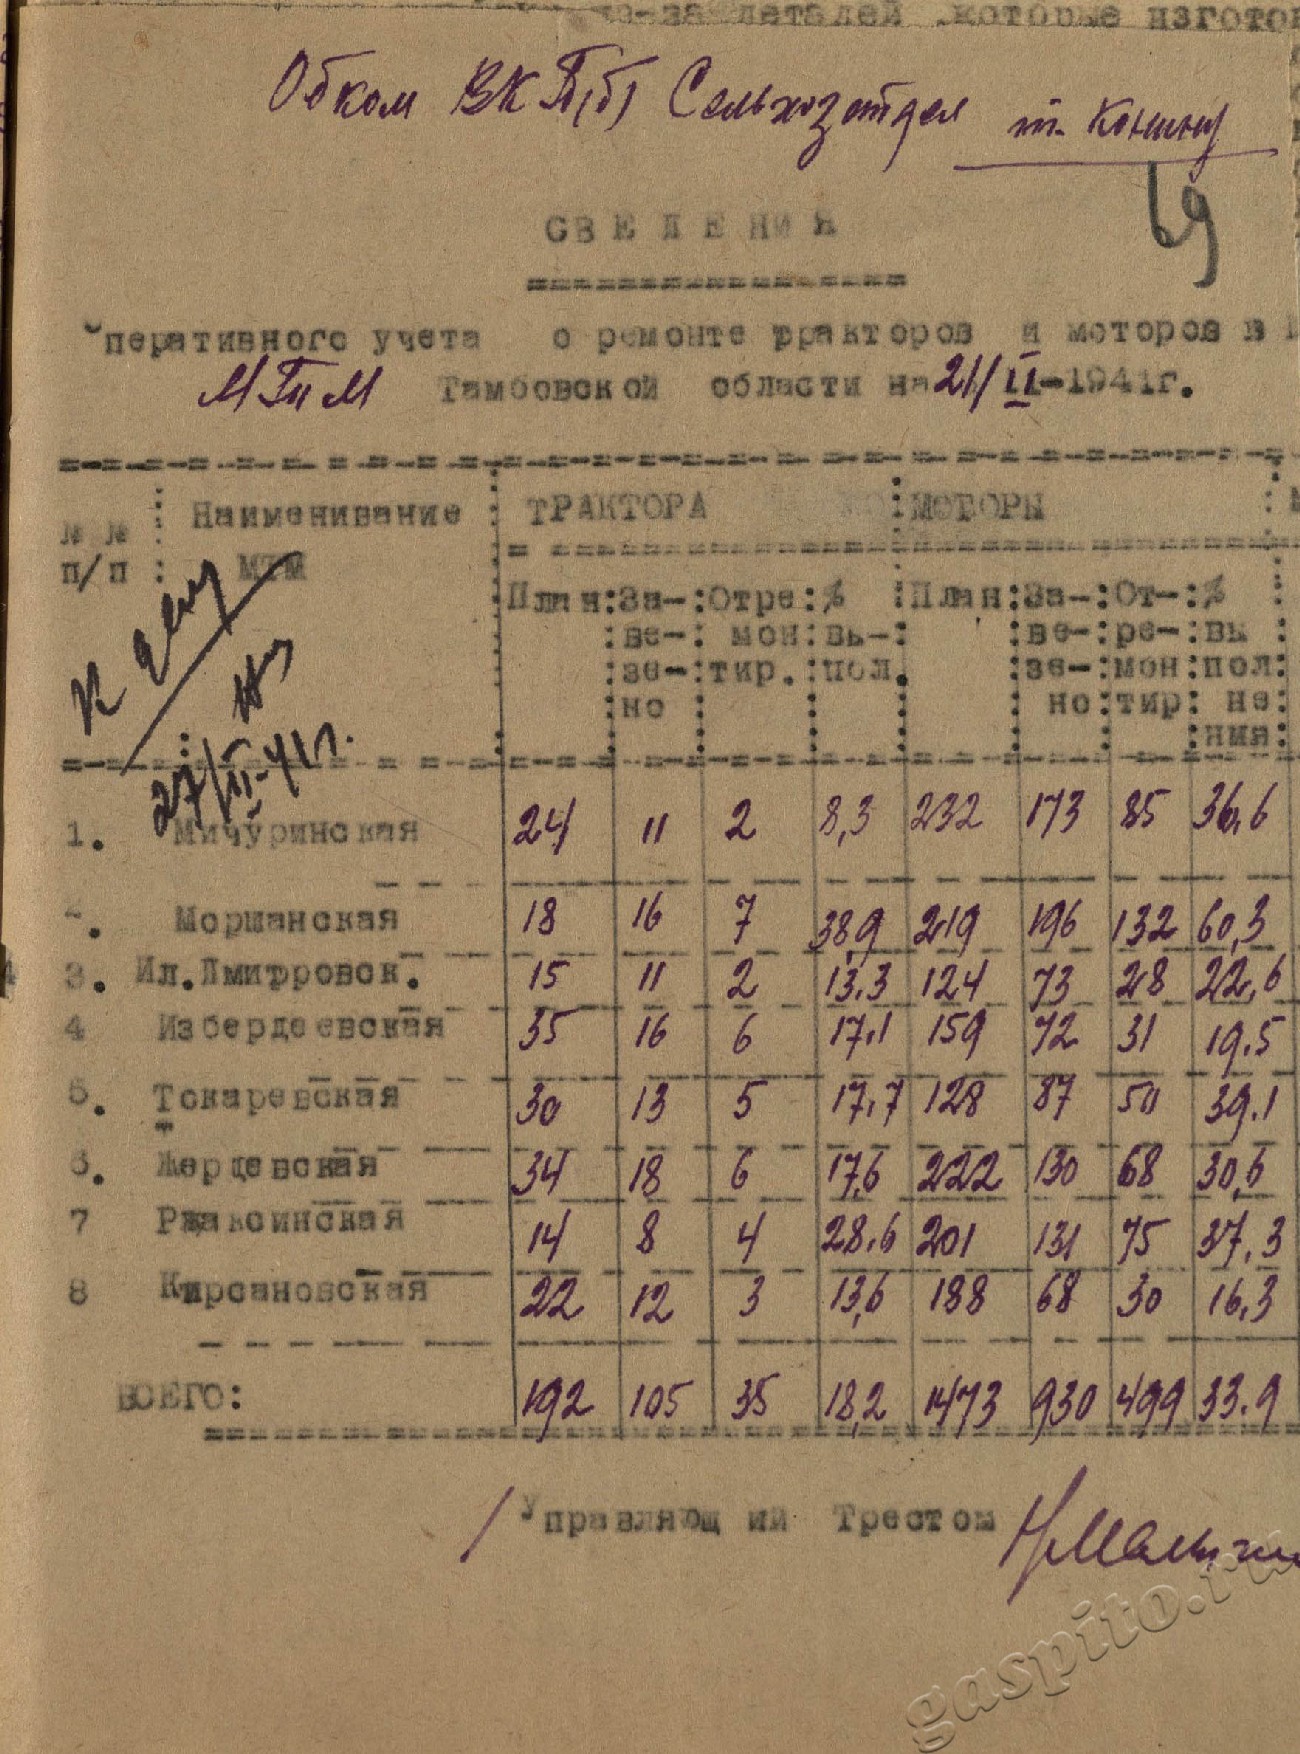 из-за деталей которые изготов
Обком ВКП(б) Сельхозотдел т. Конину
69
СВЕДЕНИЯ
Оперативного учета о ремонте тракторов и моторов в
Тамбовской области на 21/II-1941г.
№ № п/п : Наименивание МТМ : ТРАКТОРА : МОТОРЫ
План : За-ве-зе-но : Отре мон тир. : % вы-пол. : План : За-ве-зе-но : От-ре-мон тир : % вы пол не ния
27/II-41г.
1. Мичуринская 24 11 2 8,3 232 173 85 36,6
2. Моршанская 18 16 7 38,9 219 196 132 60,3
3. Ил.Дмитровск. 15 11 2 13.3 124 73 28 22,6
4 Избердеевская 35 16 6 17.1 159 72 31 19.5
5. Токаревская 30 13 5 17,7 128 87 50 39.1
6. Жердевская 34 18 6 17,6 222 130 68 30,6
7 Ржаксинская 14 8 4 28.6 201 131 75 37,3
8 Кирсановская 22 12 3 13,6 188 68 30 16,3
ВСЕГО: 192 105 35 18,2 1473 930 499 33.9
/Управляющий Трестом
gaspito.ru